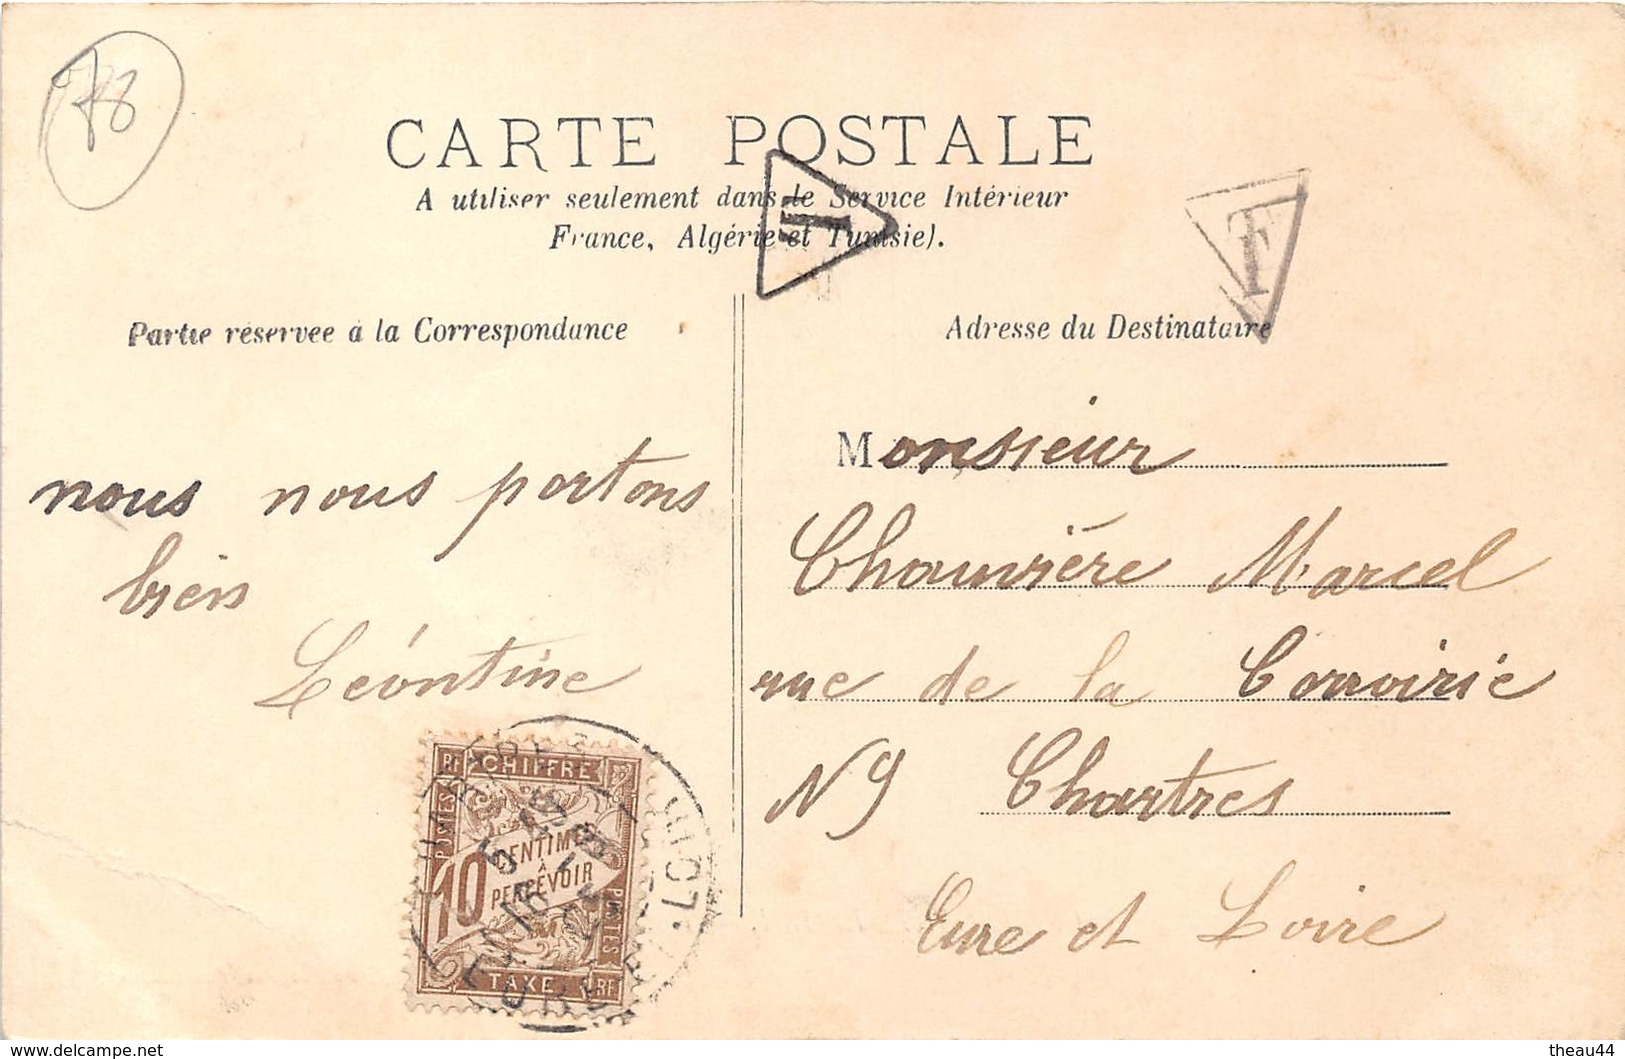 78
CARTE POSTALE
A utiliser seulement dans le Service Intérieur
France, Algérie et Tunisie).
T
T
Partie réservée à la Correspondance
Adresse du Destinataire
nous nous portons
bien
Léontine
Monsieur
Marcel
rue de la
N 9 Chartres
Eure et Loire
RF CHIFFRE
POSTES
10 CENTIMES
À
PERCEVOIR
POSTES
TAXE RF
Delcampe.net
theau44